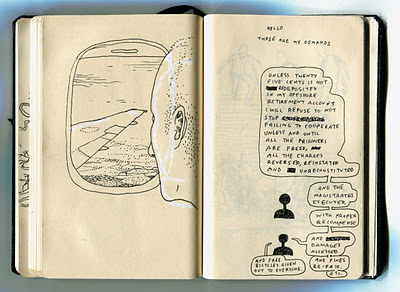 HELLO
THESE ARE MY DEMANDS
UNLESS TWENTY
FIVE CENTS IS NOT
REDEPOSITED
IN MY OFFSHORE
RETIREMENT ACCOUNT
I WILL REFUSE TO NOT
STOP
FAILING TO COOPERATE
UNLESS AND UNTIL
ALL THE PRISONERS
ARE FREED,
ALL THE CHARGES
REVERSED, REINSTATED
AND UNRECONSTITUTED
AND THE
MAGISTRATES
EXECUTED
WITH PROPER
RECOMPENSE
AND
DAMAGES
ASSESSED
AND FINES
RE-PAID
ETC.
AND FREE
BICYCLES GIVEN
OUT TO EVERYONE.